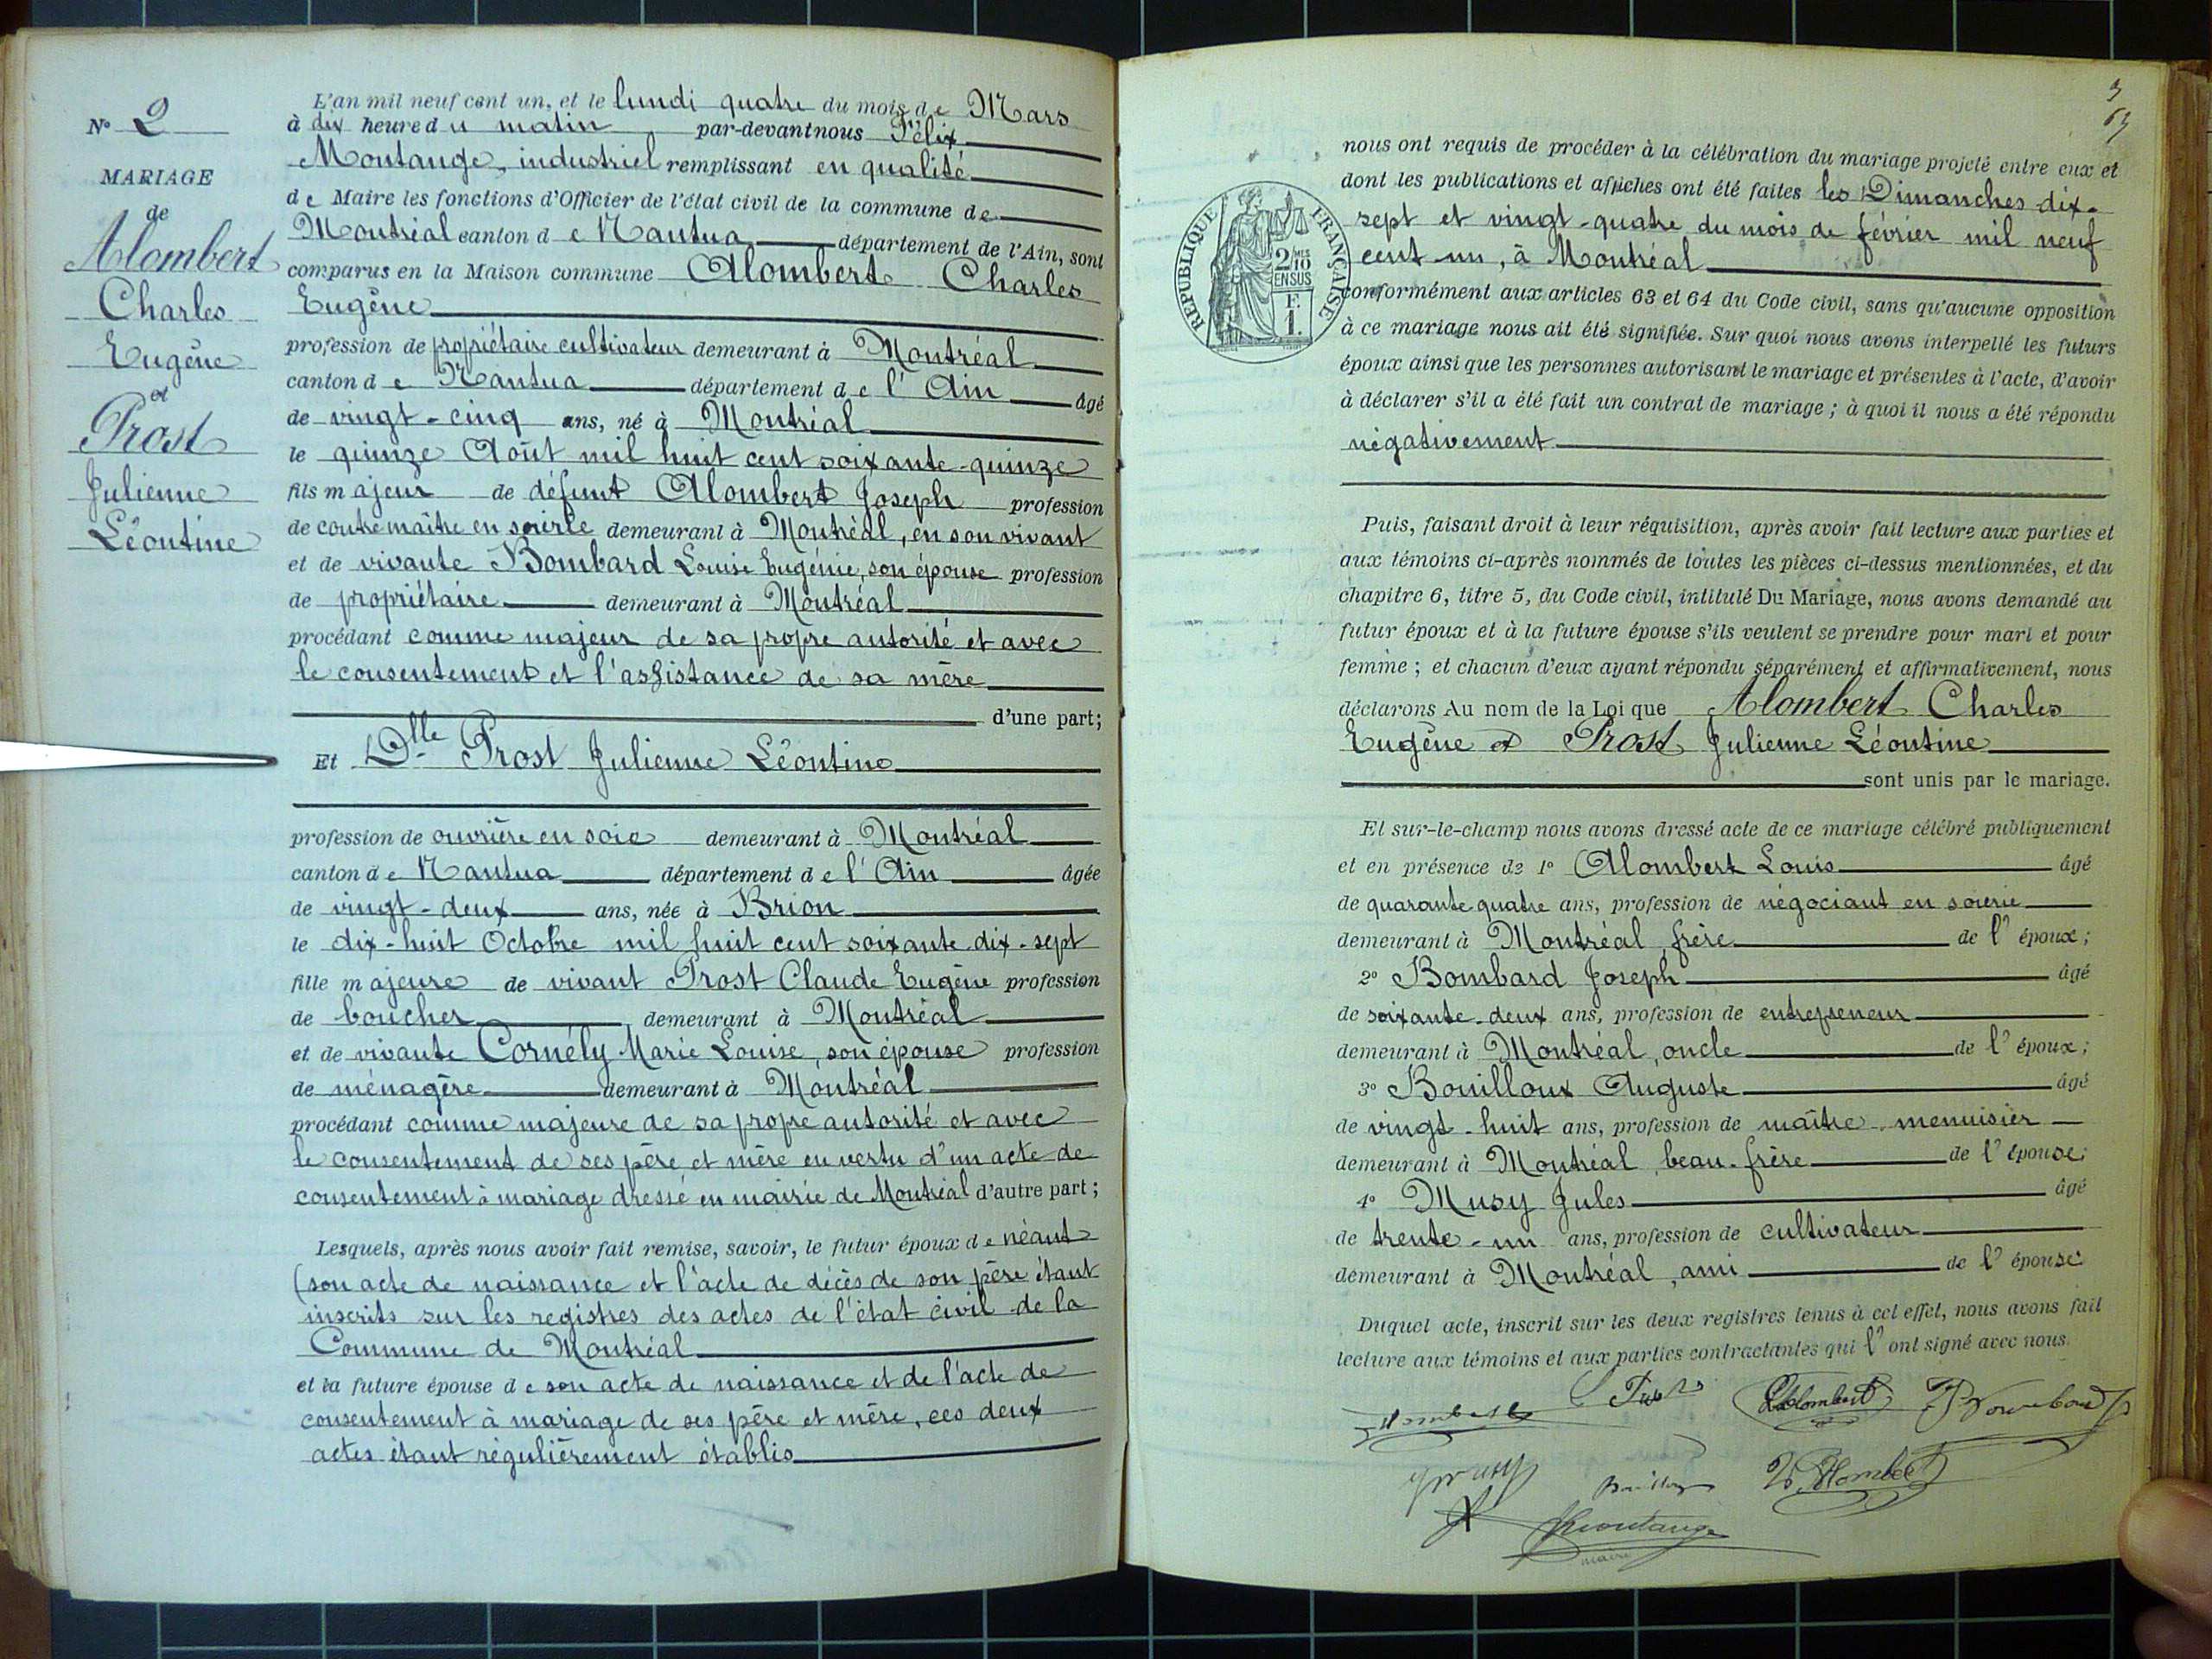 N° 2
MARIAGE
de
Alombert
Charles
Eugène
et
Prost
Julienne
Léontine
L'an mil neuf cent un, et le lundi quatre du mois de Mars
à dix heure du matin par-devant nous Félix
Montange, industriel remplissant en qualité
de Maire les fonctions d'Officier de l'état civil de la commune de
Montréal canton de Nantua département de l'Ain, sont
comparus en la Maison commune Alombert Charles
Eugène
profession de propriétaire cultivateur demeurant à Montréal
canton de Nantua département de l'Ain âgé
de vingt-cinq ans, né à Montréal
le quinze Août mil huit cent soixante-quinze
fils majeur de défunt Alombert Joseph profession
de contremaître en soierie demeurant à Montréal, en son vivant
et de vivante Bombard Louise Eugénie, son épouse profession
de propriétaire demeurant à Montréal
procédant comme majeur de sa propre autorité et avec
le consentement et l'assistance de sa mère
d'une part;
Et Dlle Prost Julienne Léontine
profession de ouvrière en soie demeurant à Montréal
canton de Nantua département de l'Ain âgée
de vingt-deux ans, née à Brion
le dix-huit Octobre mil huit cent soixante-dix-sept
fille majeure de vivant Prost Claude Eugène profession
de boucher demeurant à Montréal
et de vivante Cornély Marie Louise, son épouse profession
de ménagère demeurant à Montréal
procédant comme majeure de sa propre autorité et avec
le consentement de ses père et mère en vertu d'un acte de
consentement à mariage dressé en mairie de Montréal d'autre part;
Lesquels, après nous avoir fait remise, savoir, le futur époux de néant
(son acte de naissance et l'acte de décès de son père étant
inscrits sur les registres des actes de l'état civil de la
Commune de Montréal
et la future épouse de son acte de naissance et de l'acte de
consentement à mariage de ses père et mère, ces deux
actes étant régulièrement établis
3
RÉPUBLIQUE FRANÇAISE
2/10 MES
EN SUS
F.
1.
nous ont requis de procéder à la célébration du mariage projeté entre eux et
dont les publications et affiches ont été faites les Dimanches dix-
sept et vingt-quatre du mois de février mil neuf
cent un, à Montréal
conformément aux articles 63 et 64 du Code civil, sans qu'aucune opposition
à ce mariage nous ait été signifiée. Sur quoi nous avons interpellé les futurs
époux ainsi que les personnes autorisant le mariage et présentes à l'acte, d'avoir
à déclarer s'il a été fait un contrat de mariage; à quoi il nous a été répondu
négativement
Puis, faisant droit à leur réquisition, après avoir fait lecture aux parties et
aux témoins ci-après nommés de toutes les pièces ci-dessus mentionnées, et du
chapitre 6, titre 5, du Code civil, intitulé Du Mariage, nous avons demandé au
futur époux et à la future épouse s'ils veulent se prendre pour mari et pour
femme; et chacun d'eux ayant répondu séparément et affirmativement, nous
déclarons Au nom de la Loi que Alombert Charles
Eugène et Prost Julienne Léontine
sont unis par le mariage.
Et sur-le-champ nous avons dressé acte de ce mariage célébré publiquement
et en présence de 1° Alombert Louis âgé
de quarante quatre ans, profession de négociant en soierie
demeurant à Montréal, frère de l'époux;
2° Bombard Joseph âgé
de soixante-deux ans, profession de entrepreneur
demeurant à Montréal, oncle de l'époux;
3° Bouilloux Auguste âgé
de vingt-huit ans, profession de maître menuisier
demeurant à Montréal, beau-frère de l'épouse;
4° Musy Jules âgé
de trente-un ans, profession de cultivateur
demeurant à Montréal, ami de l'épouse
Duquel acte, inscrit sur les deux registres tenus à cet effet, nous avons fait
lecture aux témoins et aux parties contractantes qui l'ont signé avec nous.
Alombert
Alombert
Montange
maire